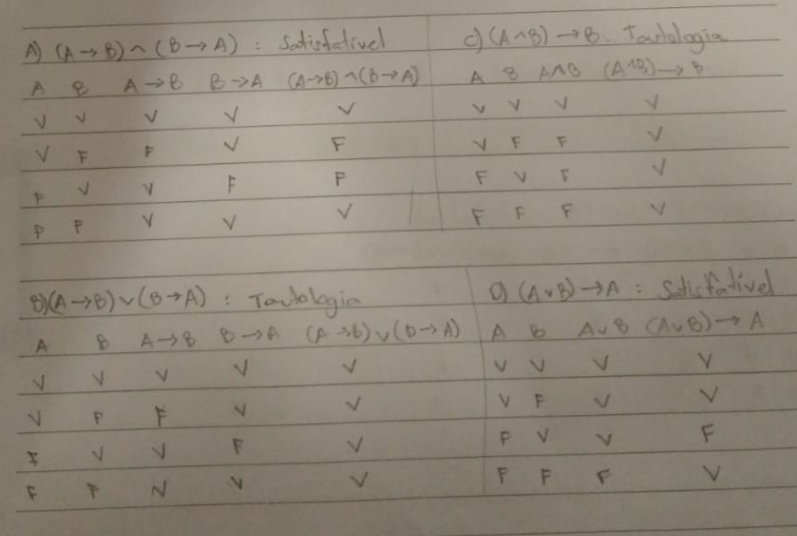 A) (A→B)^(B→A) : Satisfatível
A B A→B B→A (A→B)^(B→A)
V V V V V
V F F V F
F V V F F
F F V V V
C) (A^B)→B : Tautologia
A B A^B (A^B)→B
V V V V
V F F V
F V F V
F F F V
B) (A→B)∨(B→A) : Tautologia
A B A→B B→A (A→B)∨(B→A)
V V V V V
V F F V V
F V V F V
F F V V V
D) (A∨B)→A : Satisfatível
A B A∨B (A∨B)→A
V V V V
V F V V
F V V F
F F F V